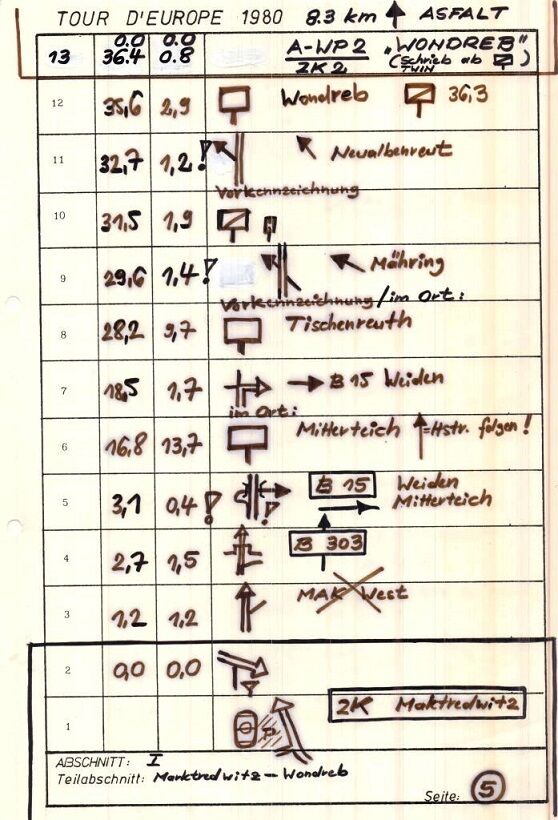 TOUR D'EUROPE 1980 8.3 km ASFALT
13 0.0 36.4 0.0 0.8 A-WP2 ZK2 „WONDREB" (Schrieb ab TWIN )
12 35,6 2,9 Wondreb 36,3
11 32,7 1,2! Neualbenreut
Vorkennzeichnung
10 31,5 1,9
9 29,6 1,4! Mähring
Vorkennzeichnung /im Ort:
8 28,2 9,7 Tischenreuth
7 18,5 1,7 B 15 Weiden
im Ort:
6 16,8 13,7 Mitterteich =Hstr. folgen!
5 3,1 0,4! ! B 15 Weiden
Mitterteich
4 2,7 1,5 B 303
3 1,2 1,2 MAK West
2 0,0 0,0
1 ZK Maktredwitz
ABSCHNITT: I
Teilabschnitt: Marktredwitz - Wondreb
Seite: 5